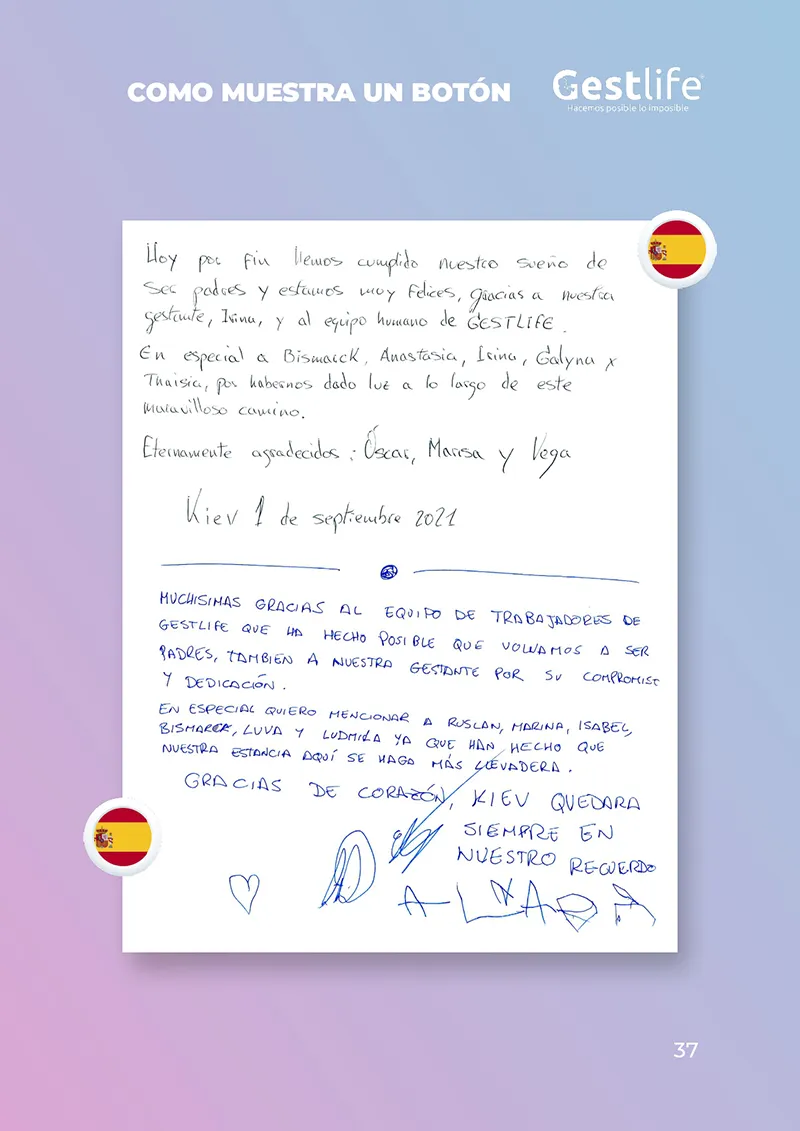 COMO MUESTRA UN BOTÓN
Gestlife
Hacemos posible lo imposible
Hoy por fin hemos cumplido nuestro sueño de
ser padres y estamos muy felices, gracias a nuestra
gestante, Irina, y al equipo humano de GESTLIFE.
En especial a Bismarck, Anastasia, Irina, Galyna y
Thaisia, por habernos dado luz a lo largo de este
maravilloso camino.
Eternamente agradecidos: Óscar, Marisa y Vega
Kiev 1 de septiembre 2021
MUCHISIMAS GRACIAS AL EQUIPO DE TRABAJADORES DE
GESTLIFE QUE HA HECHO POSIBLE QUE VOLVAMOS A SER
PADRES, TAMBIEN A NUESTRA GESTANTE POR SU COMPROMISO
Y DEDICACIÓN.
EN ESPECIAL QUIERO MENCIONAR A RUSLAN, MARINA, ISABEL,
BISMARCK, LUVA Y LUDMILA YA QUE HAN HECHO QUE
NUESTRA ESTANCIA AQUÍ SE HAGA MÁS LLEVADERA.
GRACIAS DE CORAZÓN, KIEV QUEDARA
SIEMPRE EN
NUESTRO RECUERDO
37